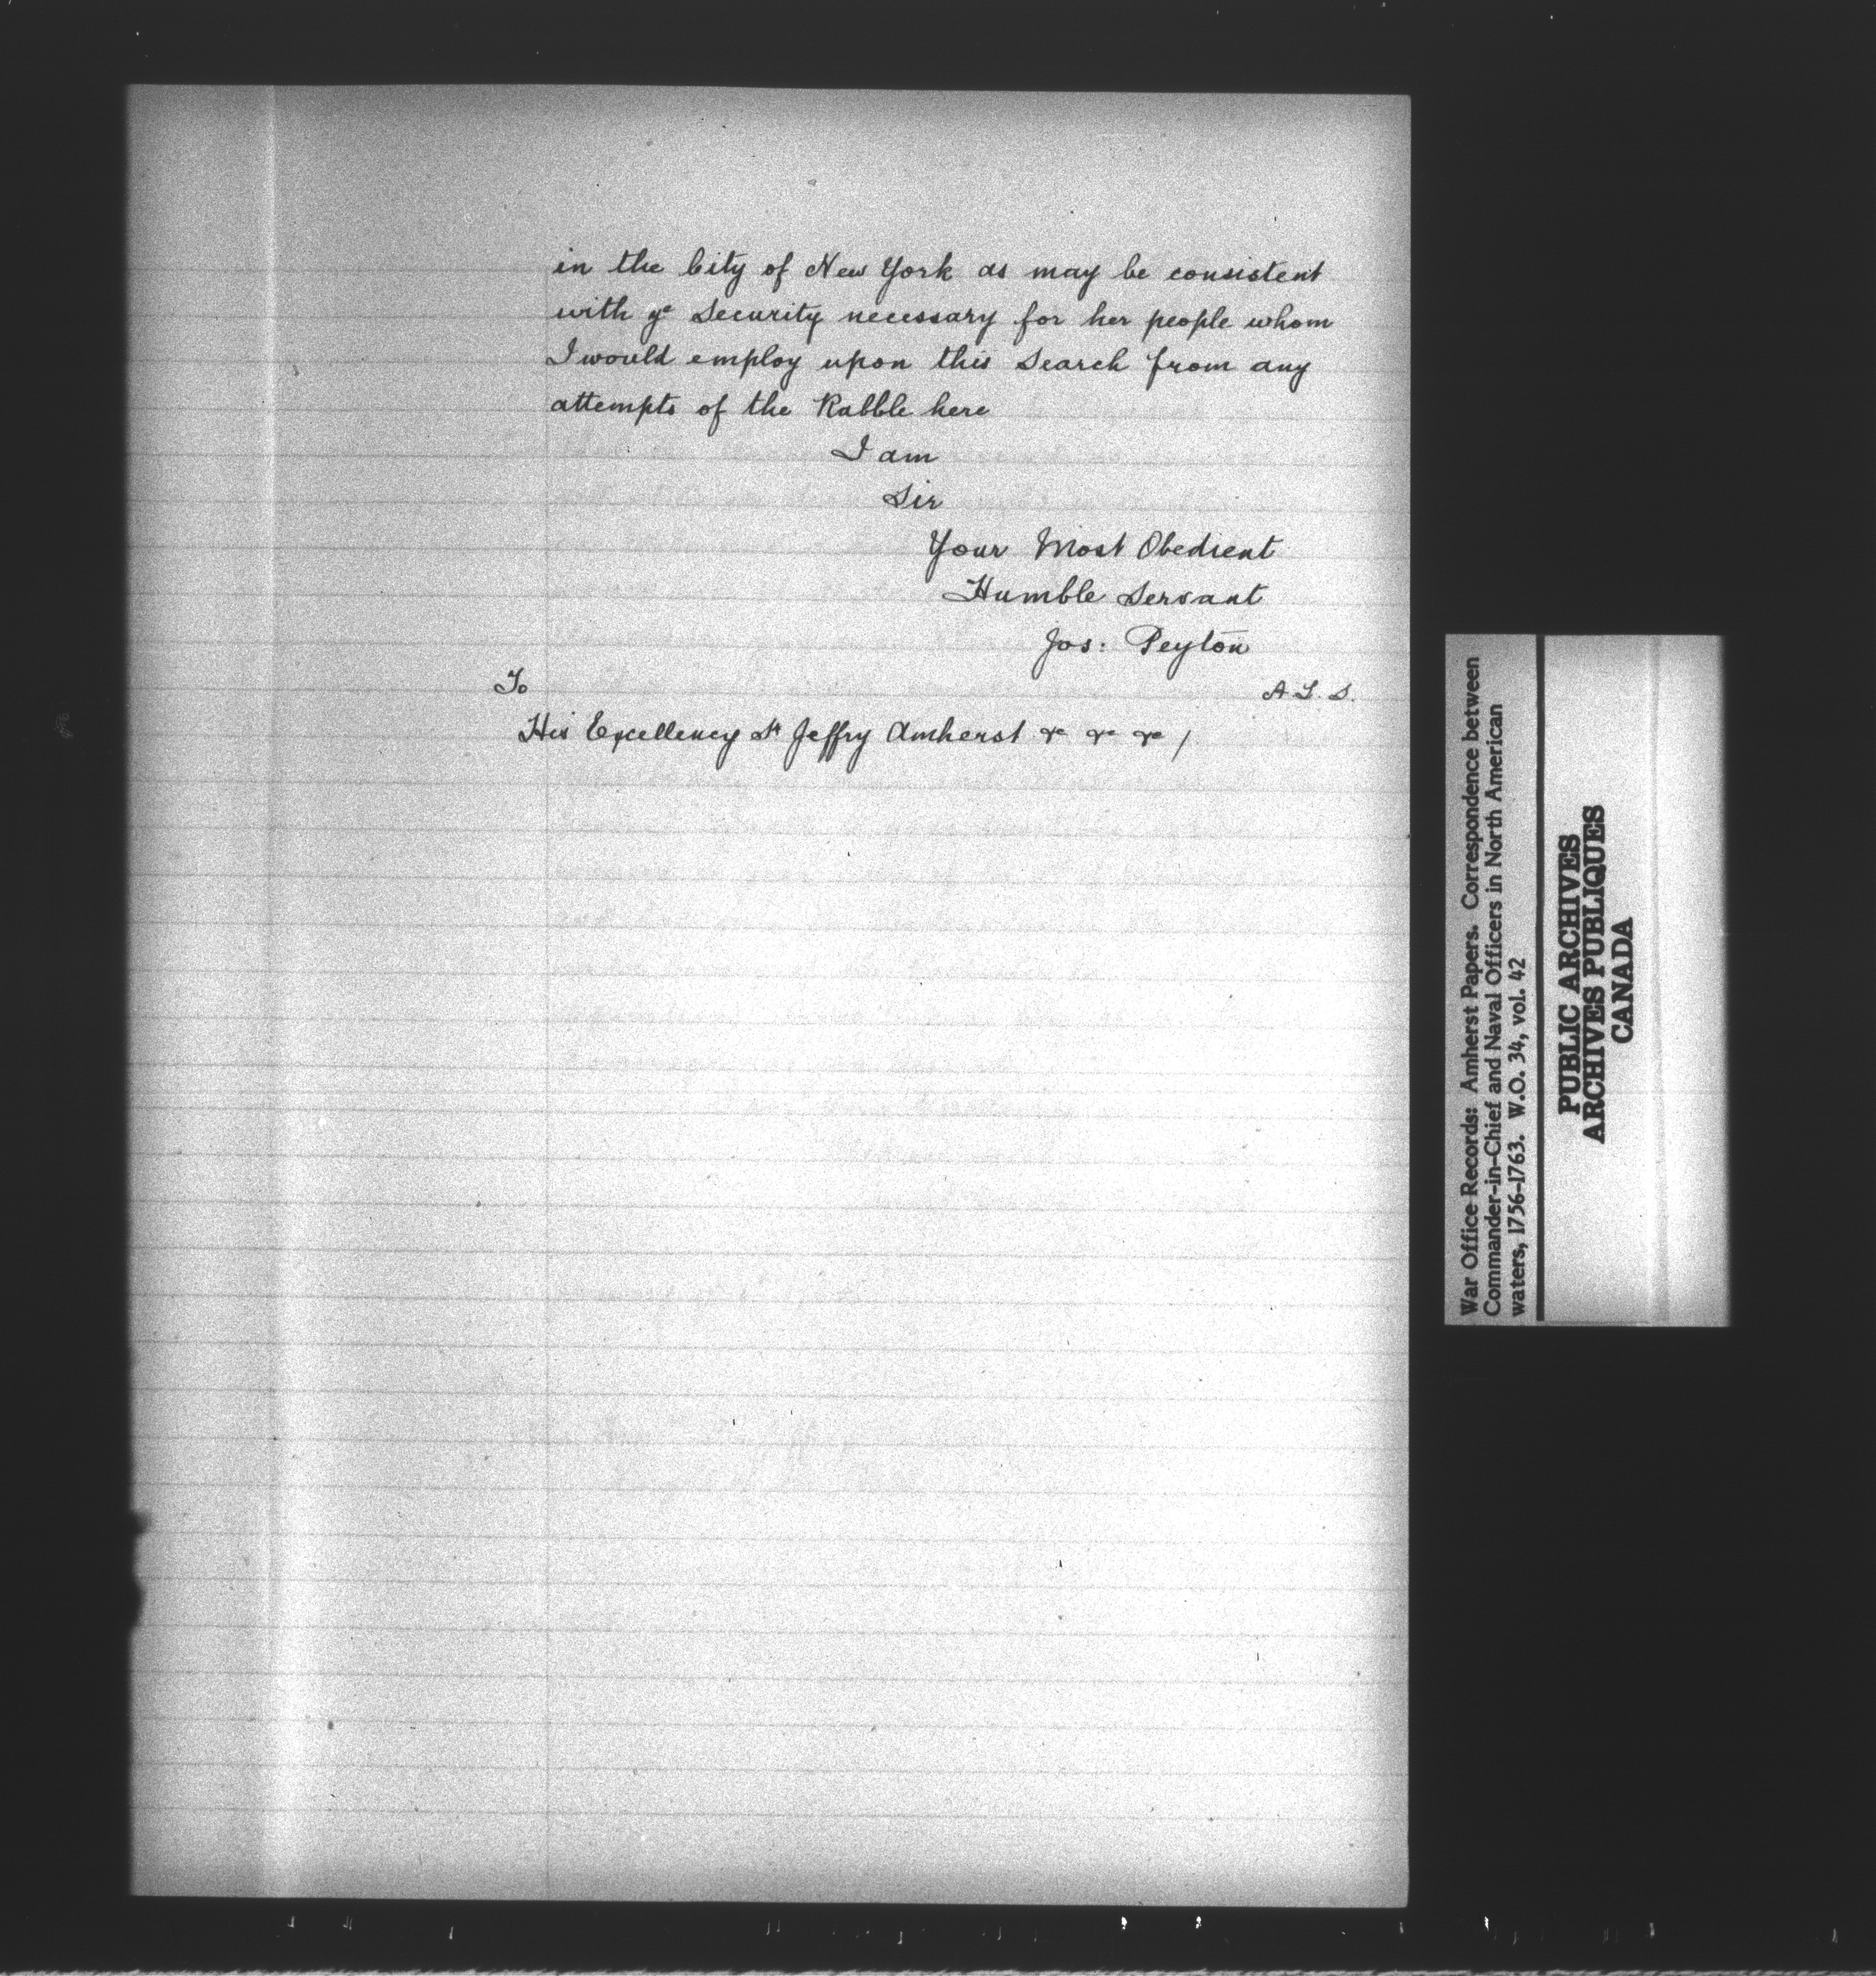 in the City of New York as may be consistent
with ye Security necessary for her people whom
I would employ upon this Search from any
attempts of the Rabble here
I am
Sir
Your Most Obedient
Humble Servant
Jos: Peyton
To
A.L.S.
His Excellency Sr Jeffry Amherst &c &c &c /
War Office Records: Amherst Papers. Correspondence between
Commander-in-Chief and Naval Officers in North American
waters, 1756-1763. W.O. 34, vol. 42
PUBLIC ARCHIVES
ARCHIVES PUBLIQUES
CANADA